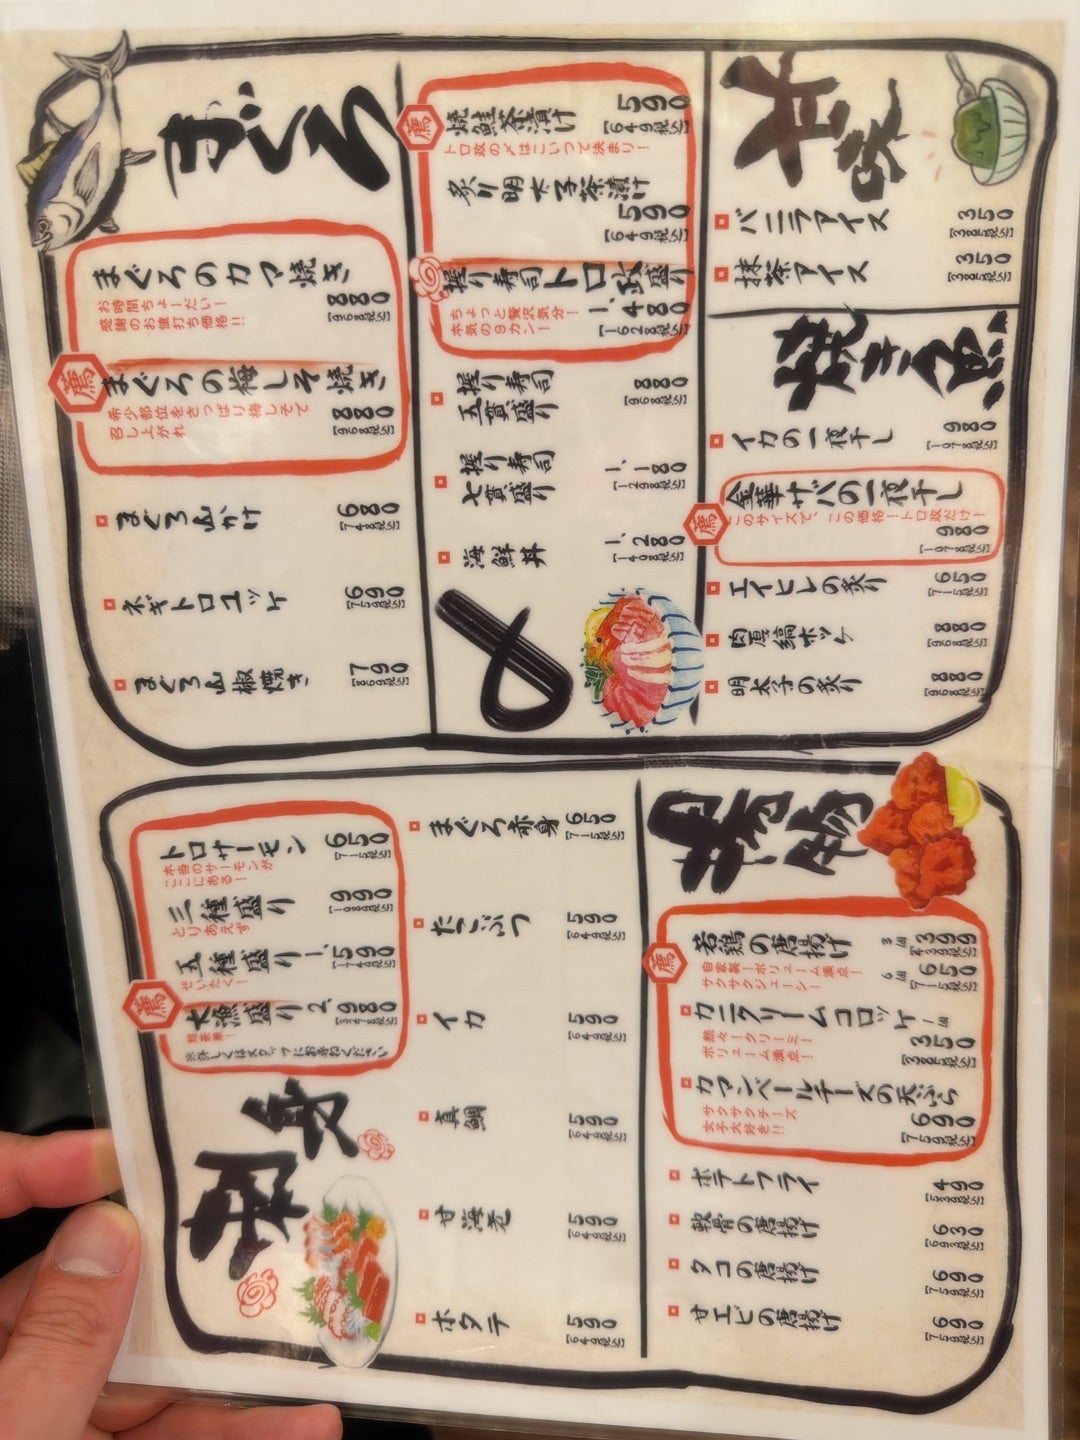 まぐろ
まぐろのカマ焼き
880
[968税込]
お時間ちょーだい!
感謝のお値打ち価格!!
薦
まぐろの梅しそ焼き
880
[968税込]
希少部位をさっぱり梅しそで
召し上がれ
まぐろ山かけ
680
[748税込]
ネギトロユッケ
690
[759税込]
まぐろ山椒焼き
790
[869税込]
薦
焼鮭茶漬け
590
[649税込]
トロ政の〆はこいつで決まり!
炙り明太子茶漬け
590
[649税込]
握り寿司トロ政盛り
1,480
[1628税込]
ちょっと贅沢気分!
本気の9カン!
握り寿司
五貫盛り
880
[968税込]
握り寿司
七貫盛り
1,180
[1298税込]
海鮮丼
1,280
[1408税込]
〆
甘味
バニラアイス
350
[385税込]
抹茶アイス
350
[385税込]
焼き魚
イカの一夜干し
980
[1078税込]
薦
金華サバの一夜干し
このサイズで、この価格!トロ政だけ!
980
[1078税込]
エイヒレの炙り
650
[715税込]
肉厚縞ホッケ
880
[968税込]
明太子の炙り
880
[968税込]
刺身
トロサーモン
650
[715税込]
本当のサーモンが
ここにある!
三種盛り
990
[1089税込]
とりあえず
五種盛り
1,590
[1749税込]
ぜいたく!
薦
大漁盛り
2,980
[3278税込]
※詳しくはスタッフにお尋ねください
まぐろ赤身
650
[715税込]
たこぶつ
590
[649税込]
イカ
590
[649税込]
真鯛
590
[649税込]
甘海老
590
[649税込]
ホタテ
590
[649税込]
揚物
薦
若鶏の唐揚げ
3個 399
[439税込]
6個 650
[715税込]
自家製!ボリューム満点!
サクサクジューシー!
カニクリームコロッケ
1個
350
[385税込]
熱々!クリーミー!
ボリューム満点!
カマンベールチーズの天ぷら
690
[759税込]
サクサクチーズ
女子大好き!!
ポテトフライ
490
[539税込]
軟骨の唐揚げ
630
[693税込]
タコの唐揚げ
690
[759税込]
甘エビの唐揚げ
690
[759税込]